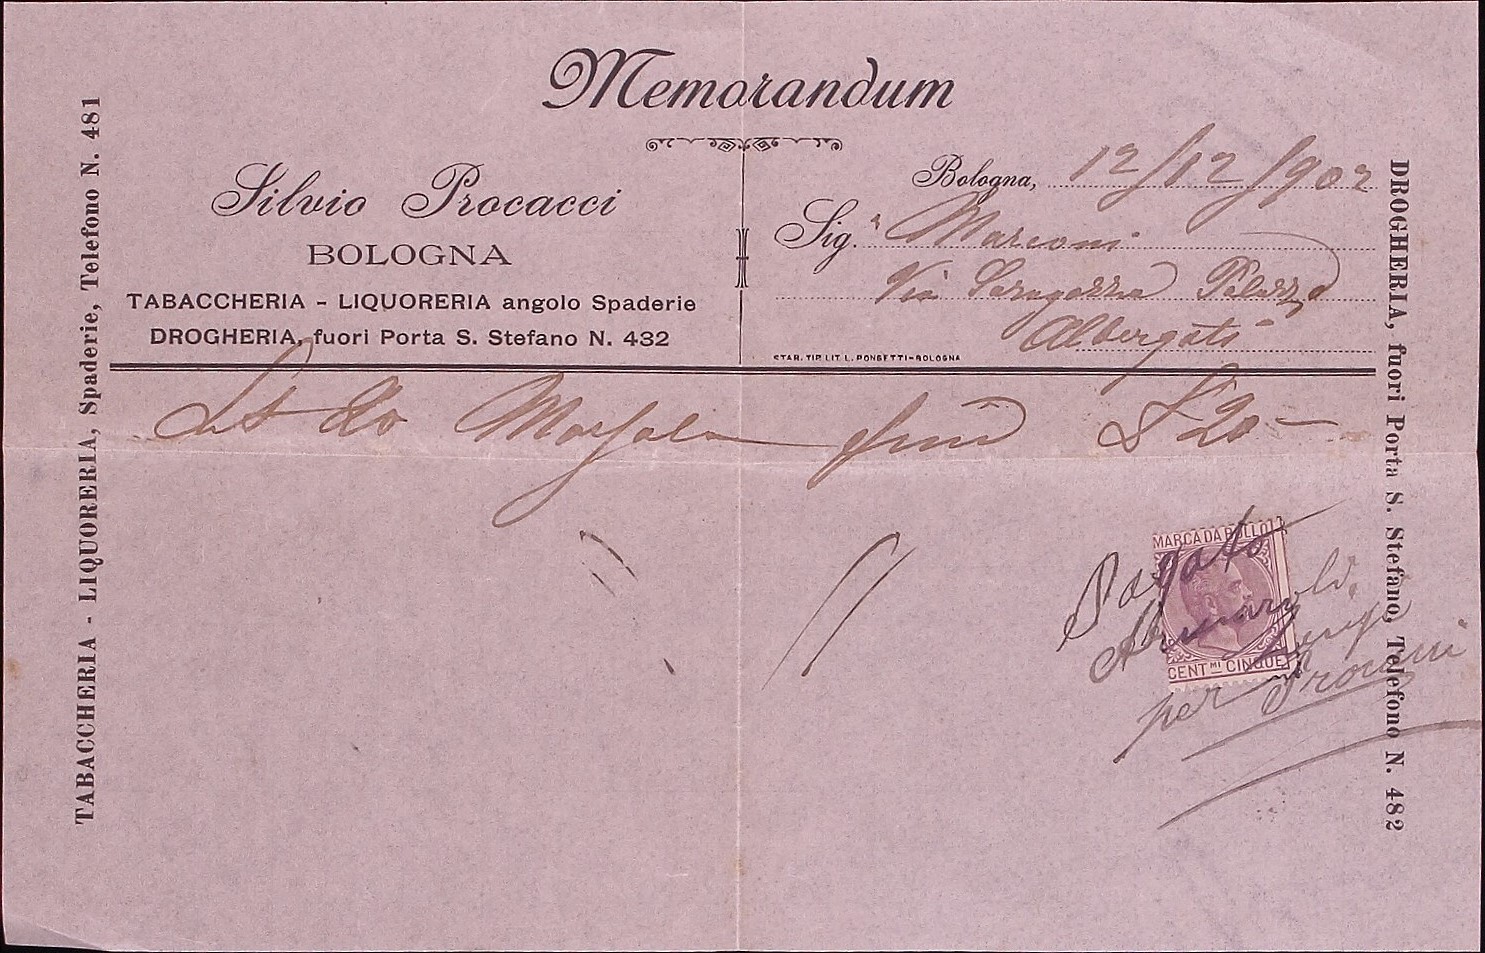 Memorandum
Silvio Procacci
BOLOGNA
TABACCHERIA - LIQUORERIA angolo Spaderie
DROGHERIA, fuori Porta S. Stefano N. 432
Bologna, 12/12/1902
Sig.ª Marconi
Via Saragozza Palazzo
Albergati
STAB. TIP. LIT. L. PONGETTI-BOLOGNA
Lt 20 Marsala £ 20 -
TABACCHERIA - LIQUORERIA, Spaderie, Telefono N. 481
DROGHERIA, fuori Porta S. Stefano, Telefono N. 482
MARCA DA BOLLO
CENT.MI CINQUE
Pagato
per Procacci